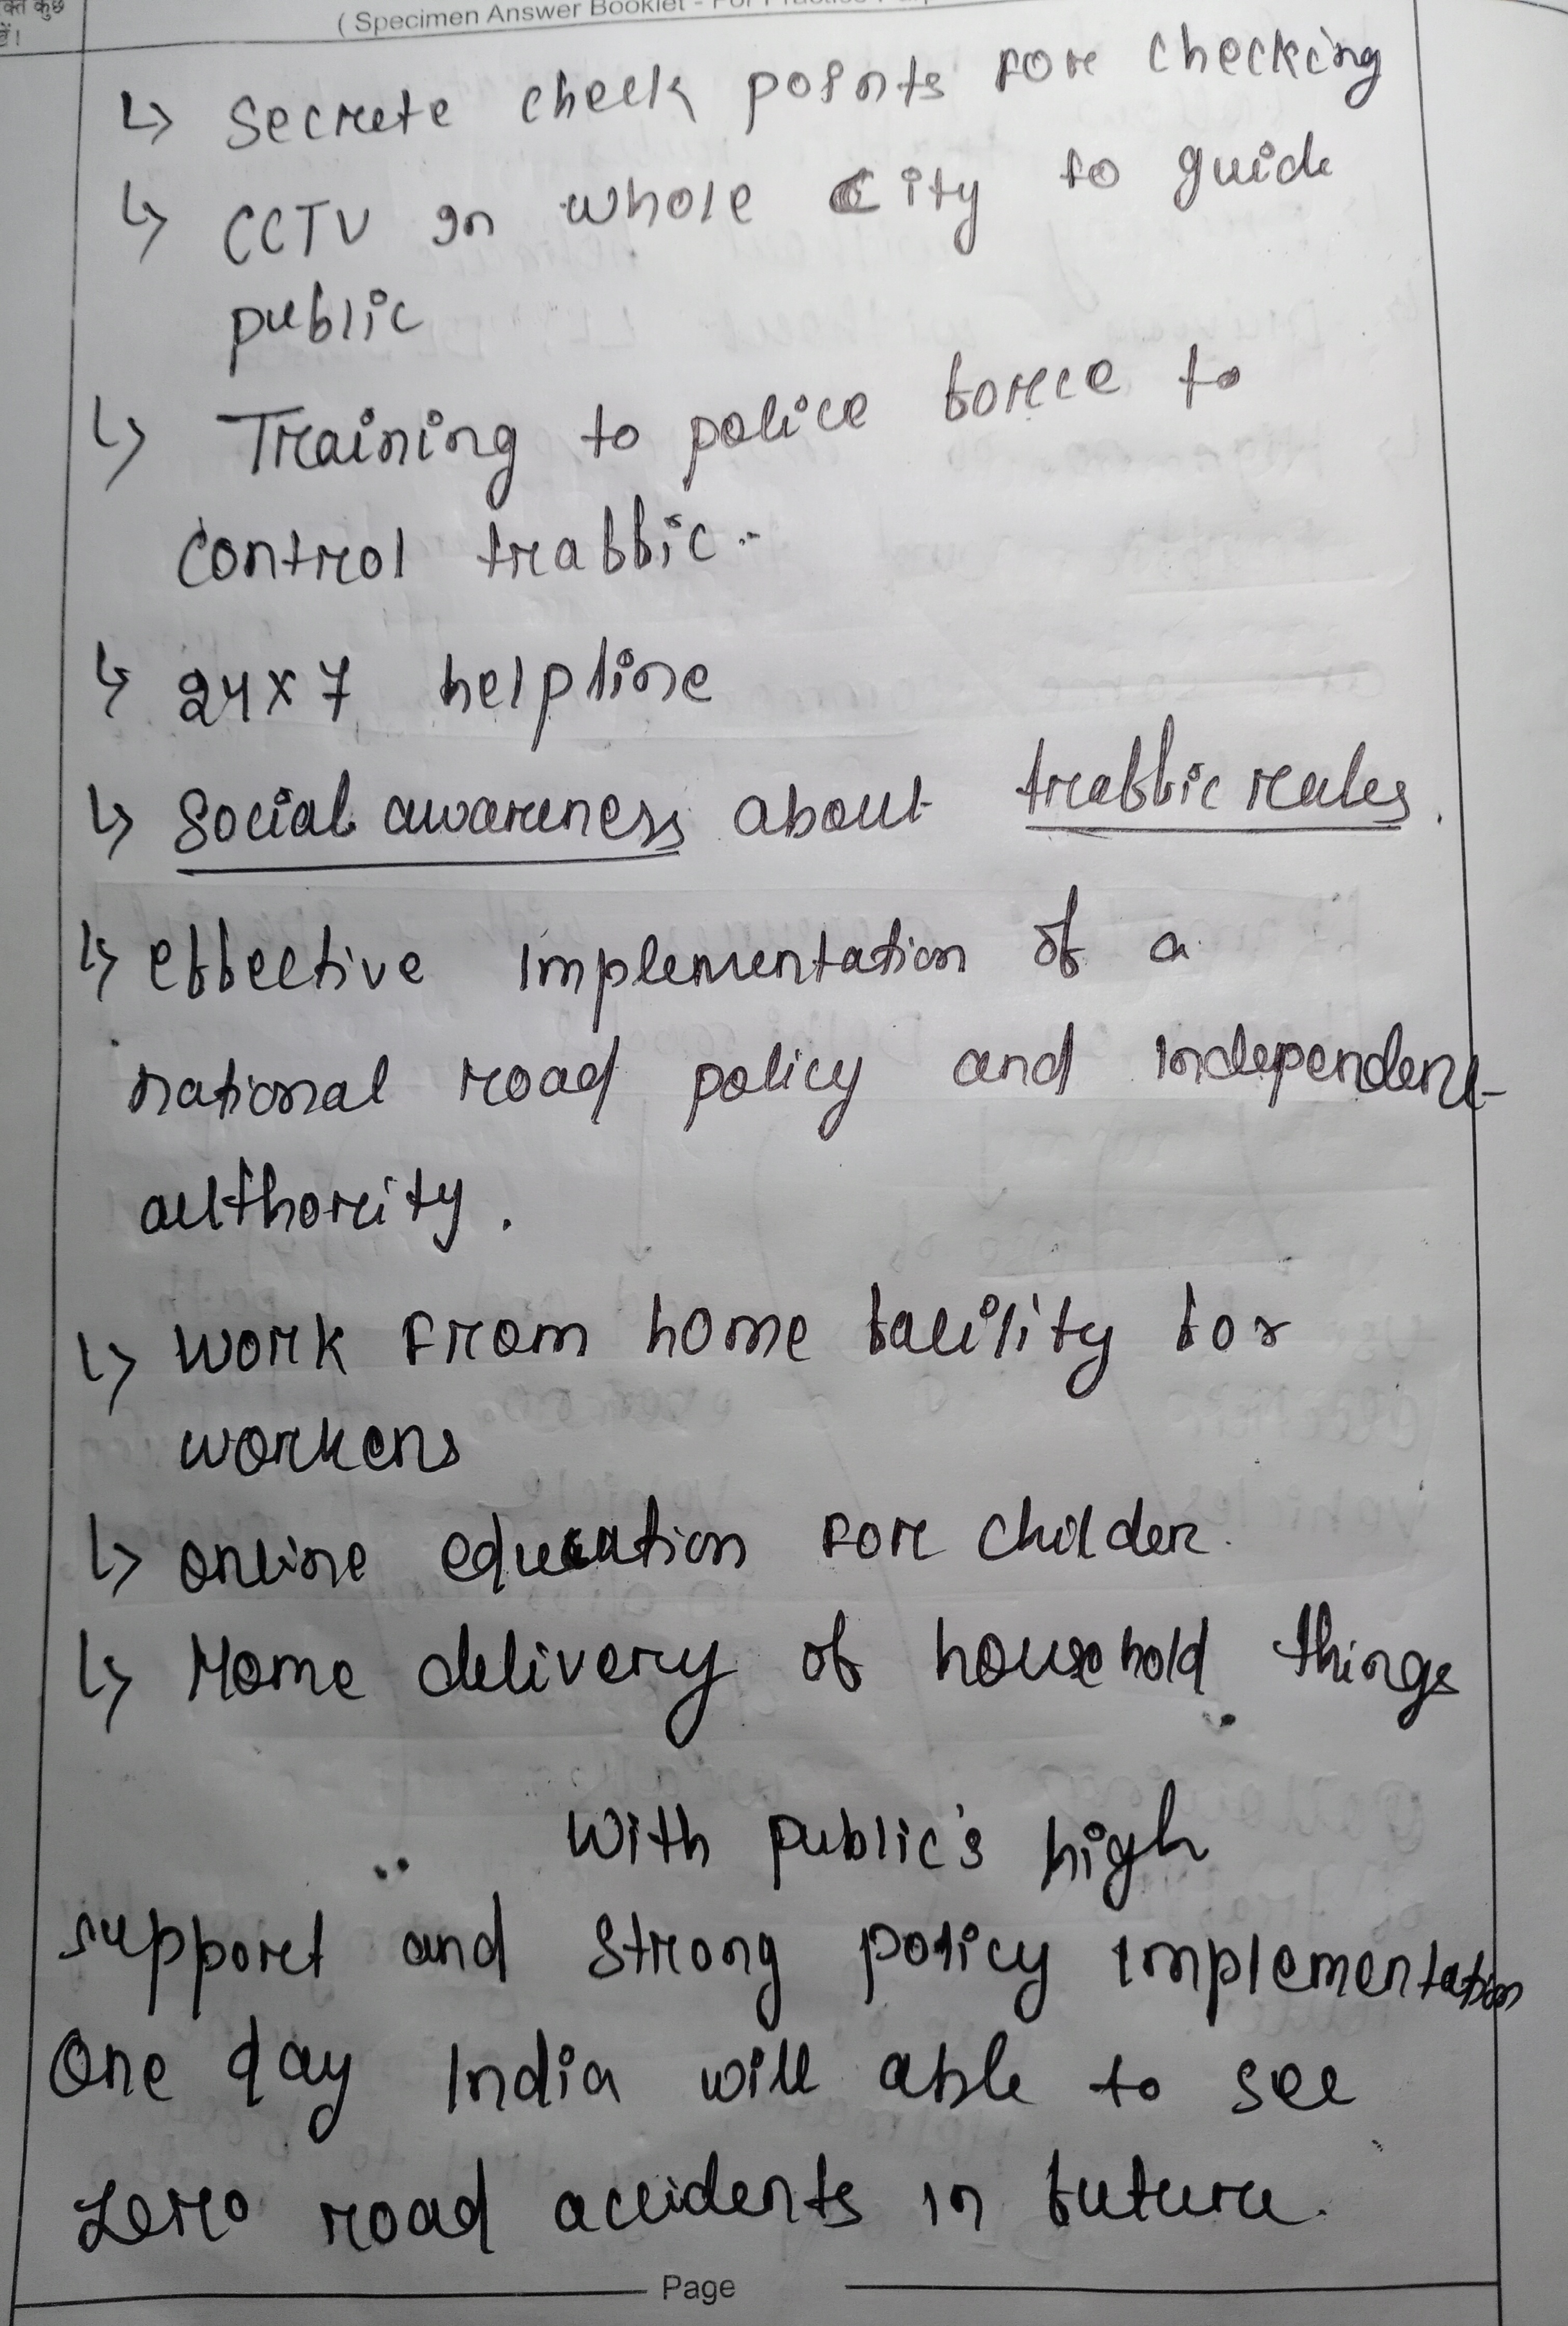 ( Specimen Answer Booklet - For Practice
↳ Secrete check points for checking
↳ CCTV in whole city to guide
public
↳ Training to police force to
control traffic.
↳ 24x7 helpline
↳ Social awareness about traffic rules.
↳ effective implementation of a
national road policy and independent
authority.
↳ work from home facility for
workens
↳ online education for childer.
↳ Home delivery of household things
With public's high
support and strong policy implementation
One day India will able to see
zero road accidents in future.
Page